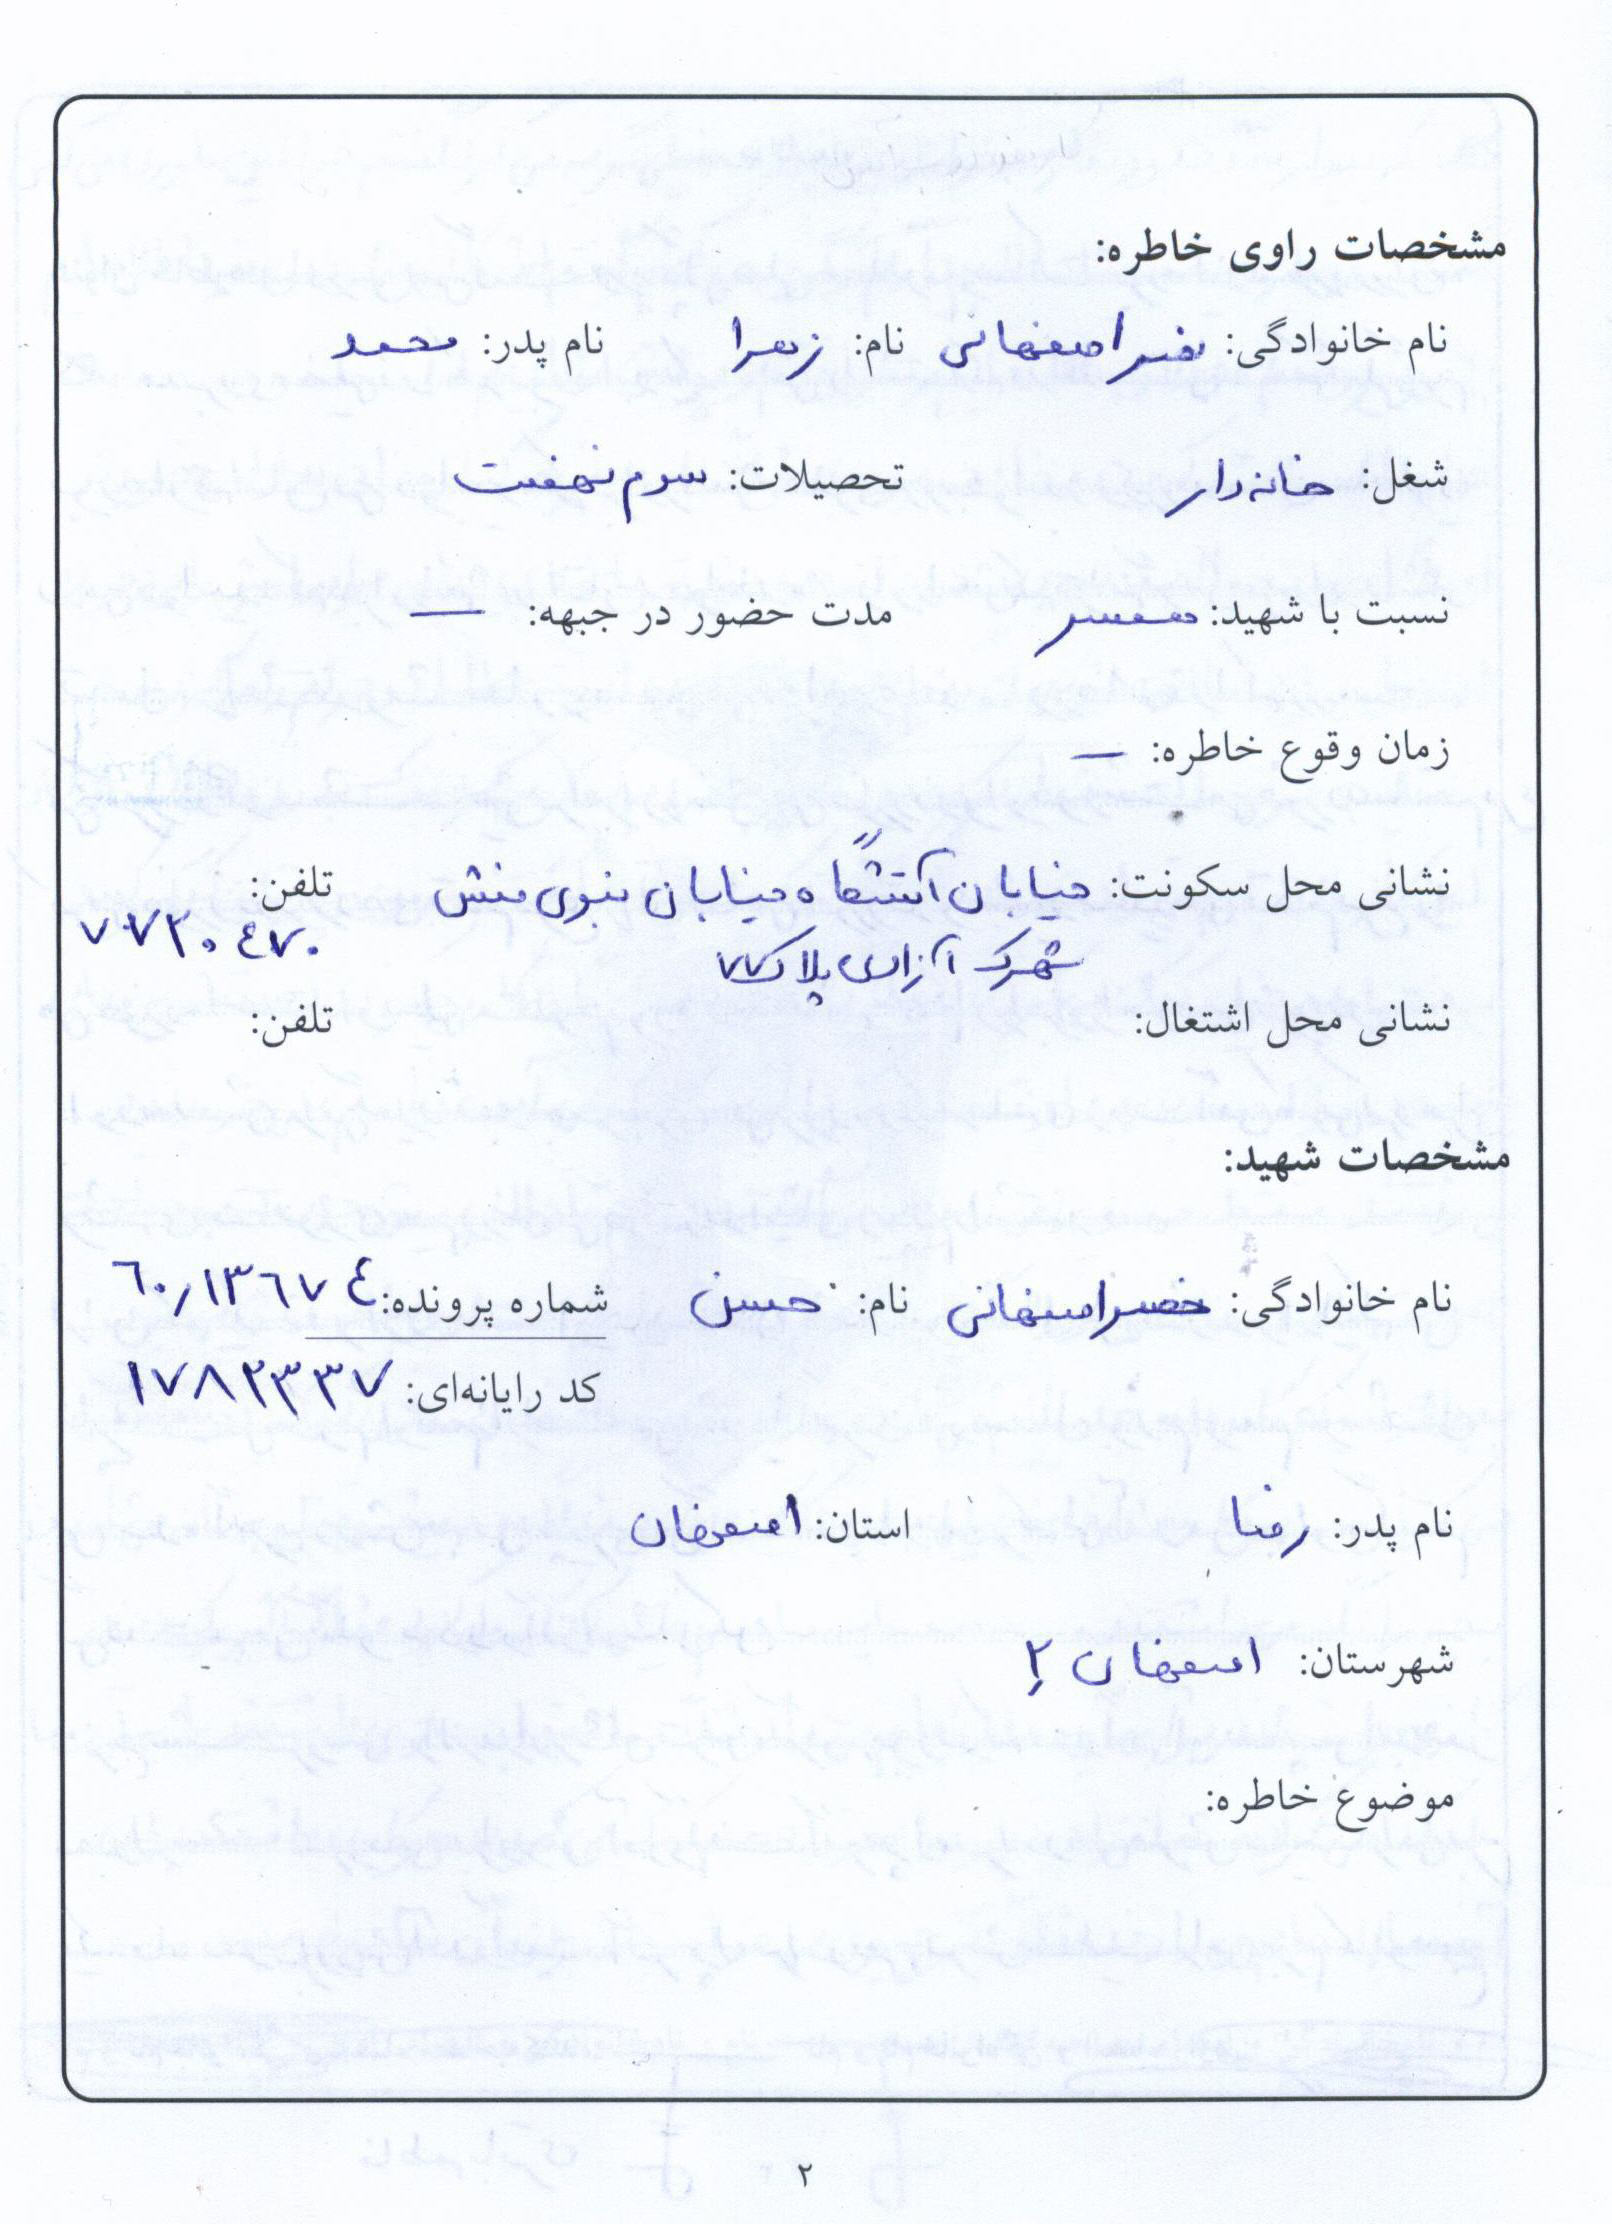 مشخصات راوی خاطره:
نام خانوادگی: نصر اصفهانی نام: زهرا نام پدر: محمد
شغل: خانه‌دار تحصیلات: سوم نهضت
نسبت با شهید: همسر مدت حضور در جبهه: —
زمان وقوع خاطره: —
نشانی محل سکونت: خیابان آتشگاه خیابان نبوی منش تلفن:
شهرک آزادی پلاک ۷۷ ۷۷۳۰۴۷۰
نشانی محل اشتغال: تلفن:
مشخصات شهید:
نام خانوادگی: نصر اصفهانی نام: حسن شماره پرونده: ۶۰/۱۳۶۷۴
کد رایانه‌ای: ۱۷۸۲۳۳۷
نام پدر: رضا استان: اصفهان
شهرستان: اصفهان ۲
موضوع خاطره:
۲